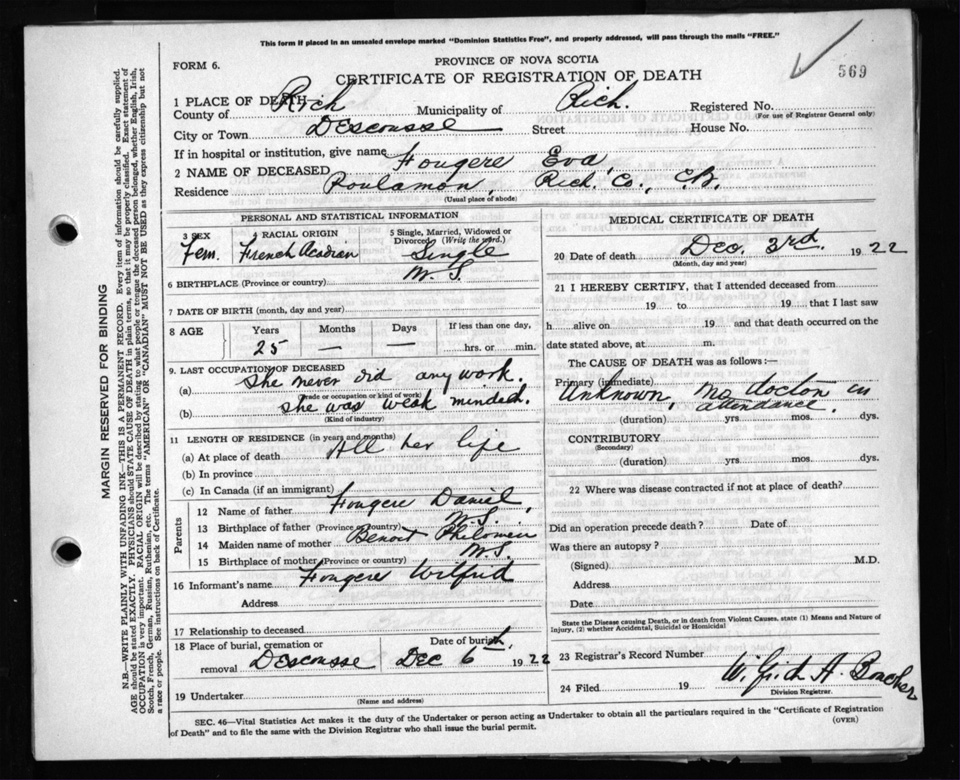 This form if placed in an unsealed envelope marked "Dominion Statistics Free", and properly addressed, will pass through the mails "FREE."
FORM 6.
PROVINCE OF NOVA SCOTIA
569
CERTIFICATE OF REGISTRATION OF DEATH
1 PLACE OF DEATH
County of Rich Municipality of Rich. Registered No.
(For use of Registrar General only)
City or Town Descousse Street House No.
If in hospital or institution, give name
2 NAME OF DECEASED Fougere Eva
Residence Poulamon, Rich. Co., C.B.
(Usual place of abode)
PERSONAL AND STATISTICAL INFORMATION
3 SEX 4 RACIAL ORIGIN 5 Single, Married, Widowed or Divorced (Write the word.)
Fem. French Acadian Single
6 BIRTHPLACE (Province or country) N. S.
7 DATE OF BIRTH (month, day and year)
8 AGE Years Months Days If less than one day,
25 — — hrs. or min.
9. LAST OCCUPATION OF DECEASED
(a) She never did any work.
(Trade or occupation or kind of work)
(b) She was weak minded.
(Kind of industry)
11 LENGTH OF RESIDENCE (in years and months)
(a) At place of death All her life
(b) In province
(c) In Canada (if an immigrant)
Parents
12 Name of father Fougere Daniel
13 Birthplace of father (Province or country) N.S.
14 Maiden name of mother Benoit Philomen
15 Birthplace of mother (Province or country) N.S.
16 Informant's name Fougere Wilfrid
Address
17 Relationship to deceased
18 Place of burial, cremation or removal Descousse Date of burial Dec 6 1922
19 Undertaker
(Name and address)
MEDICAL CERTIFICATE OF DEATH
20 Date of death Dec 3rd. 1922
(Month, day and year)
21 I HEREBY CERTIFY, that I attended deceased from
19 to 19 that I last saw
h alive on 19 and that death occurred on the
date stated above, at m.
The CAUSE OF DEATH was as follows:—
Primary (immediate) Unknown, no doctor in attendance.
(duration) yrs mos. dys.
CONTRIBUTORY
(Secondary)
(duration) yrs mos. dys.
22 Where was disease contracted if not at place of death?
Did an operation precede death? Date of
Was there an autopsy?
(Signed) M.D.
Address
Date
State the Disease causing Death, or in death from Violent Causes, state (1) Means and Nature of
Injury, (2) whether Accidental, Suicidal or Homicidal
23 Registrar's Record Number
24 Filed 19
Division Registrar.
SEC. 46—Vital Statistics Act makes it the duty of the Undertaker or person acting as Undertaker to obtain all the particulars required in the "Certificate of Registration
of Death" and to file the same with the Division Registrar who shall issue the burial permit.
(OVER)
MARGIN RESERVED FOR BINDING
N.B.—WRITE PLAINLY WITH UNFADING INK—THIS IS A PERMANENT RECORD. Every item of information should be carefully supplied.
AGE should be stated EXACTLY. PHYSICIANS should STATE CAUSE OF DEATH in plain terms, so that it may be properly classified. Exact statement of
OCCUPATION is very important. RACIAL ORIGIN will be described by stating to what people or tongue the deceased person belonged, whether English, Irish,
Scotch, French, German, Russian, Ruthenian, etc. The terms "AMERICAN" OR "CANADIAN" MUST NOT BE USED as they express citizenship but not
a race or people. See instructions on back of Certificate.